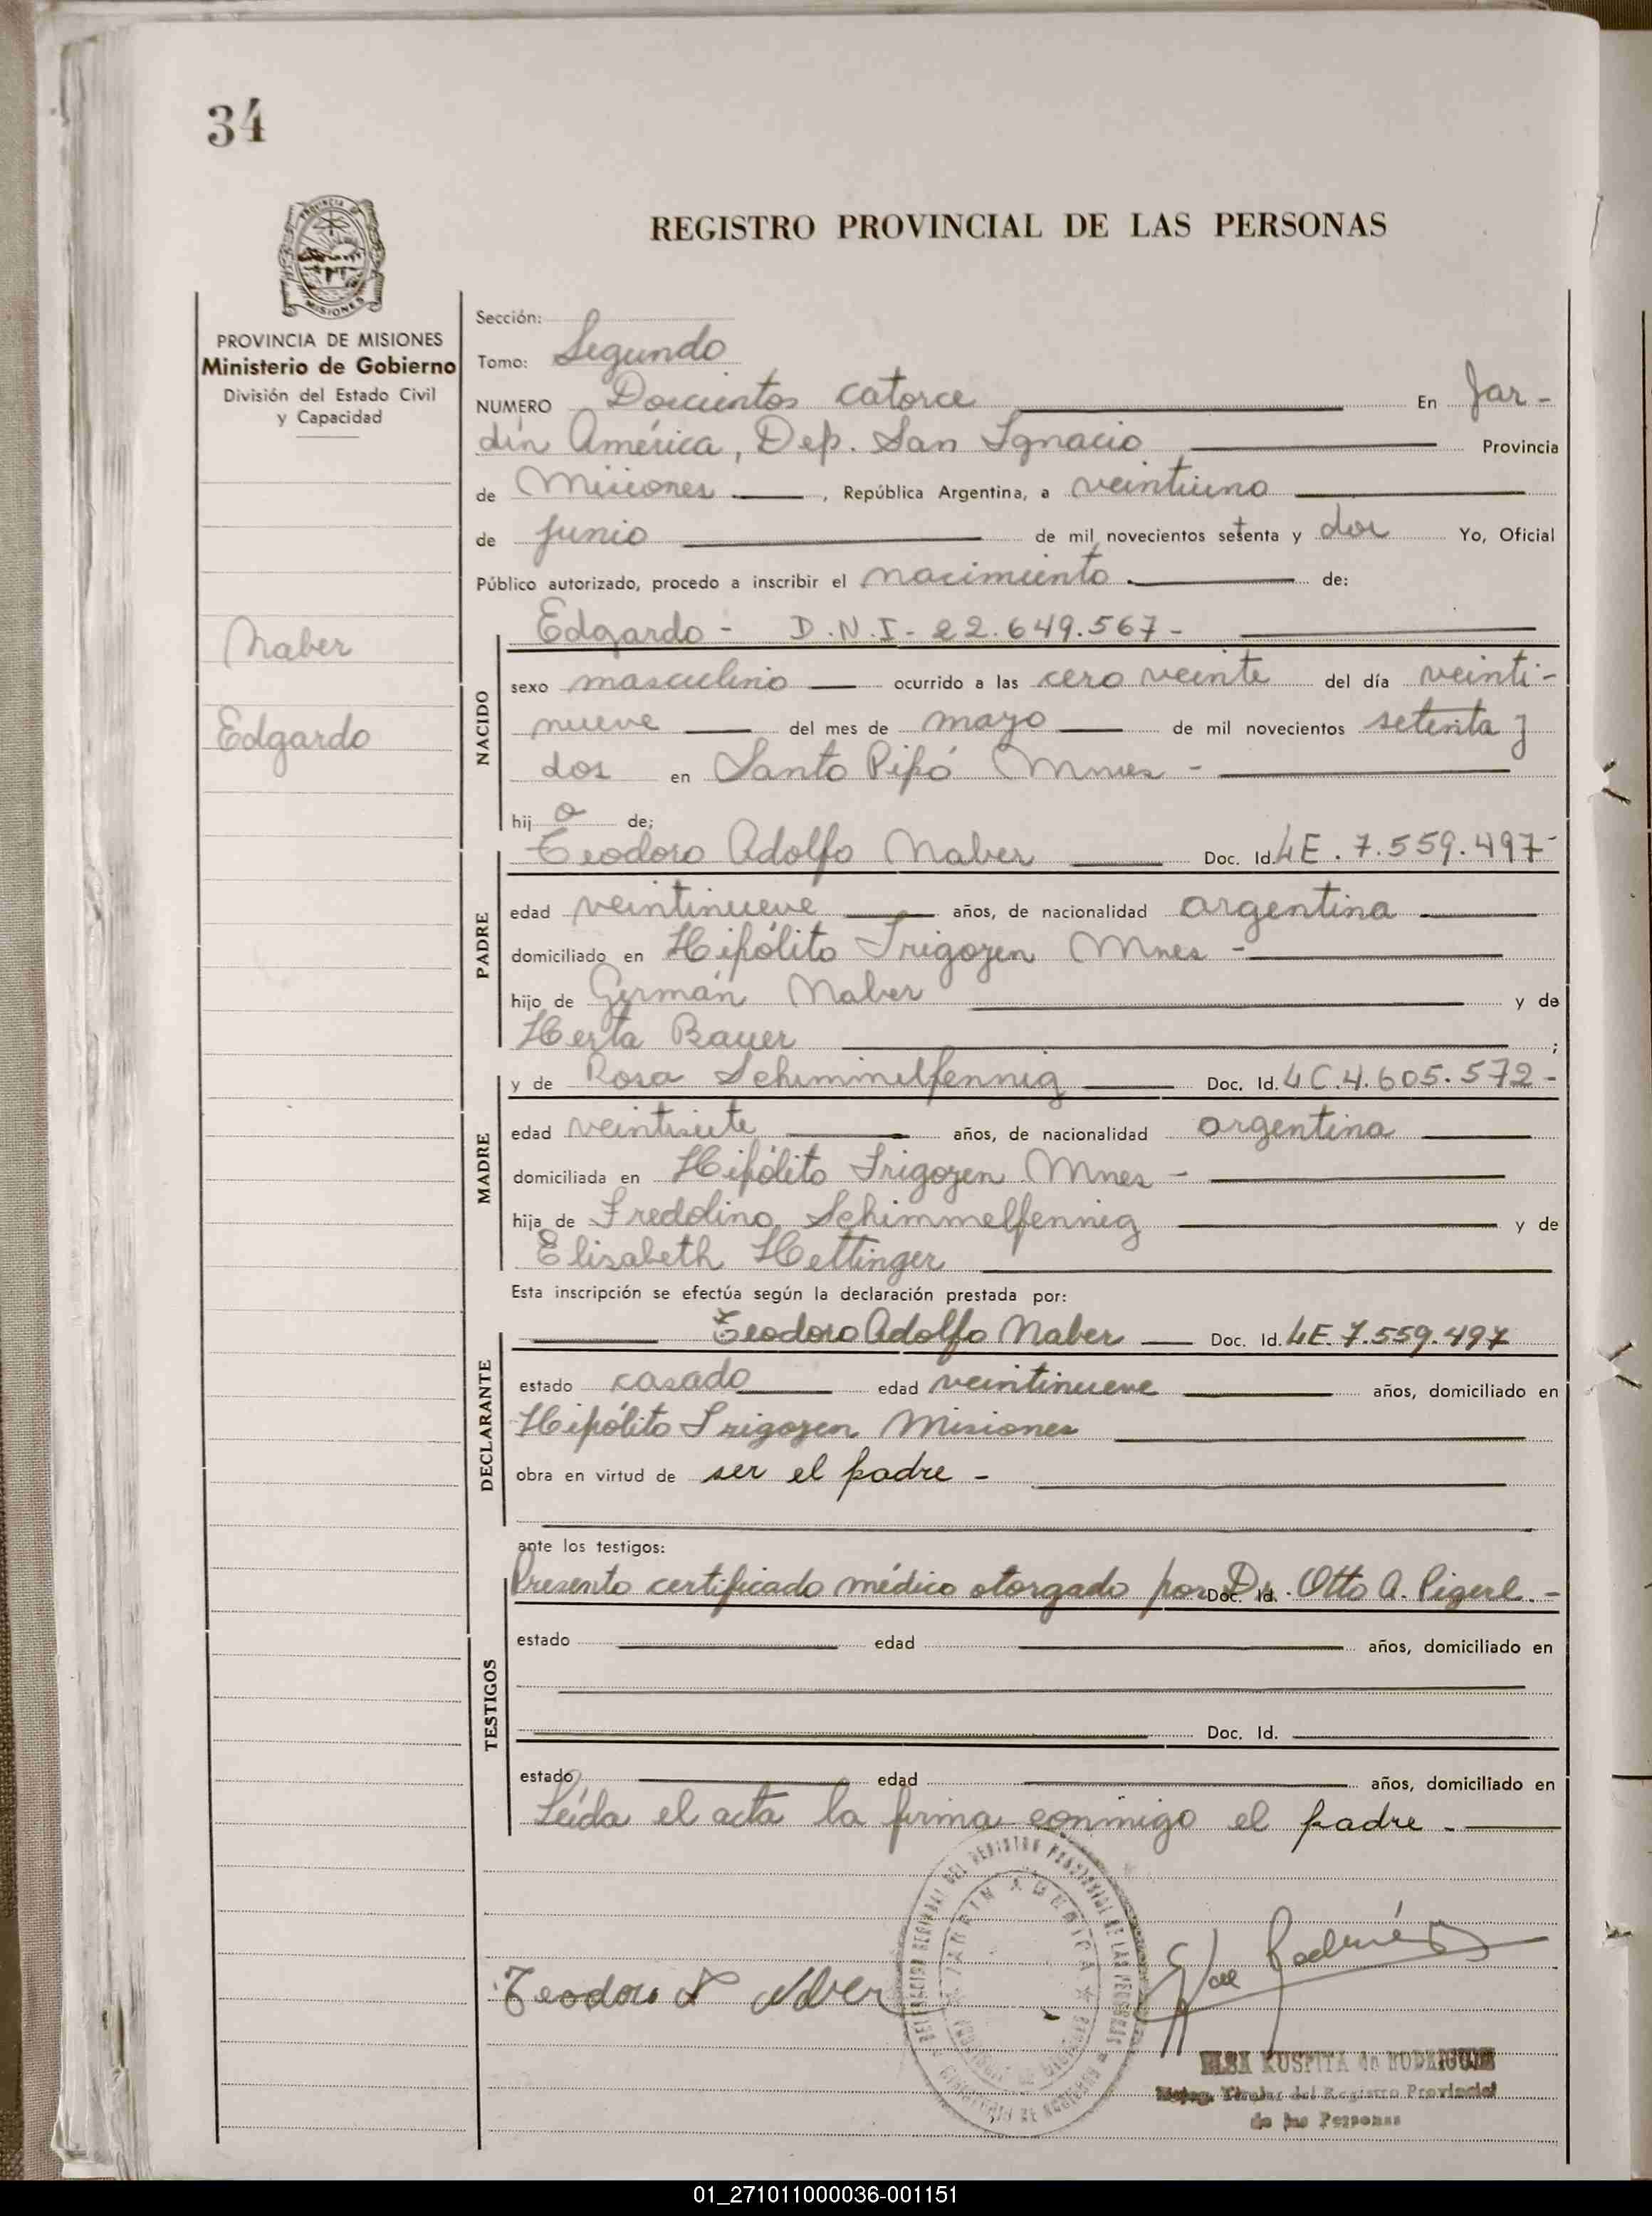 34
PROVINCIA DE
MISIONES
REGISTRO PROVINCIAL DE LAS PERSONAS
PROVINCIA DE MISIONES
Ministerio de Gobierno
División del Estado Civil
y Capacidad
Naber
Edgardo
Sección:
Tomo: Segundo
NUMERO Doscientos catorce En Jar-
dín América, Dep. San Ignacio Provincia
de Misiones, República Argentina, a veintiuno
de junio de mil novecientos setenta y dos Yo, Oficial
Público autorizado, procedo a inscribir el nacimiento de:
Edgardo - D.N.I- 22.649.567-
NACIDO
sexo masculino ocurrido a las cero veinte del día veinti-
nueve del mes de mayo de mil novecientos setenta y
dos en Santo Pipó Mnes -
hij o de;
PADRE
Teodoro Adolfo Naber Doc. Id. LE. 7.559.497-
edad veintinueve años, de nacionalidad argentina
domiciliado en Hipólito Irigoyen Mnes -
hijo de Germán Naber y de
Herta Bauer ;
MADRE
y de Rosa Schimmelfennig Doc. Id. LC.4.605.572-
edad veintisiete años, de nacionalidad argentina
domiciliada en Hipólito Irigoyen Mnes -
hija de Fredolino Schimmelfennig y de
Elisabeth Hettinger
Esta inscripción se efectúa según la declaración prestada por:
DECLARANTE
Teodoro Adolfo Naber Doc. Id. LE. 7.559.497
estado casado edad veintinueve años, domiciliado en
Hipólito Irigoyen Misiones
obra en virtud de ser el padre -
ante los testigos:
TESTIGOS
Presento certificado médico otorgado por D. Doc. Id. Otto A. Pigerl.-
estado edad años, domiciliado en
Doc. Id.
estado edad años, domiciliado en
Leída el acta la firma conmigo el padre.-
Teodoro A Naber
JARDIN AMERICA
ELSA KUSPITA de RODRIGUEZ
Titular del Registro Provincial
de las Personas
01_271011000036-001151